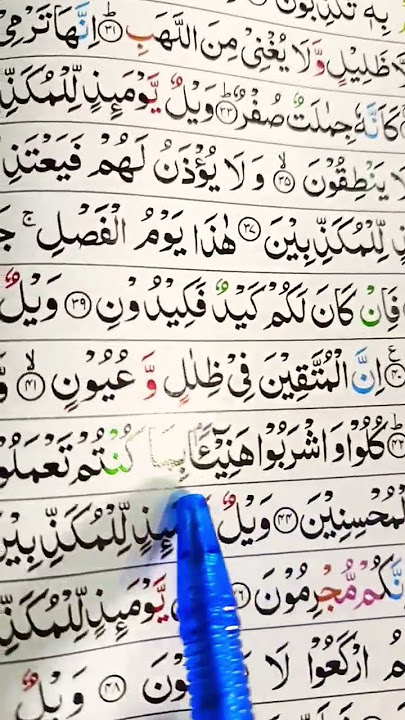 بِهٖ تُكَذِّبُوْنَ
ظَلِيْلٍ وَّلَا يُغْنِىْ مِنَ اللَّهَبِ ﴿۳۱﴾ اِنَّهَا تَرْمِىْ
كَاَنَّهٗ جِمٰلَتٌ صُفْرٌ ﴿۳۳﴾ وَيْلٌ يَّوْمَئِذٍ لِّلْمُكَذِّ
لَا يَنْطِقُوْنَ ﴿۳۵﴾ وَلَا يُؤْذَنُ لَهُمْ فَيَعْتَذِ
لِّلْمُكَذِّبِيْنَ ﴿۳۷﴾ هٰذَا يَوْمُ الْفَصْلِ ۚ
فَاِنْ كَانَ لَكُمْ كَيْدٌ فَكِيْدُوْنِ ﴿۳۹﴾ وَيْلٌ
اِنَّ الْمُتَّقِيْنَ فِىْ ظِلٰلٍ وَّعُيُوْنٍ ﴿۴۱﴾
﴿۴۲﴾ كُلُوْا وَاشْرَبُوْا هَنِيْٓئًۢا بِمَا كُنْتُمْ تَعْمَلُو
الْمُحْسِنِيْنَ ﴿۴۴﴾ وَيْلٌ ئِذٍ لِّلْمُكَذِّبِيْنَ
اِنَّكُمْ مُّجْرِمُوْنَ ﴿۴۶﴾ يَّوْمَئِذٍ لِّلْمُكَذِّ
ارْكَعُوْا لَا وْنَ ﴿۴۸﴾ وَيْلٌ